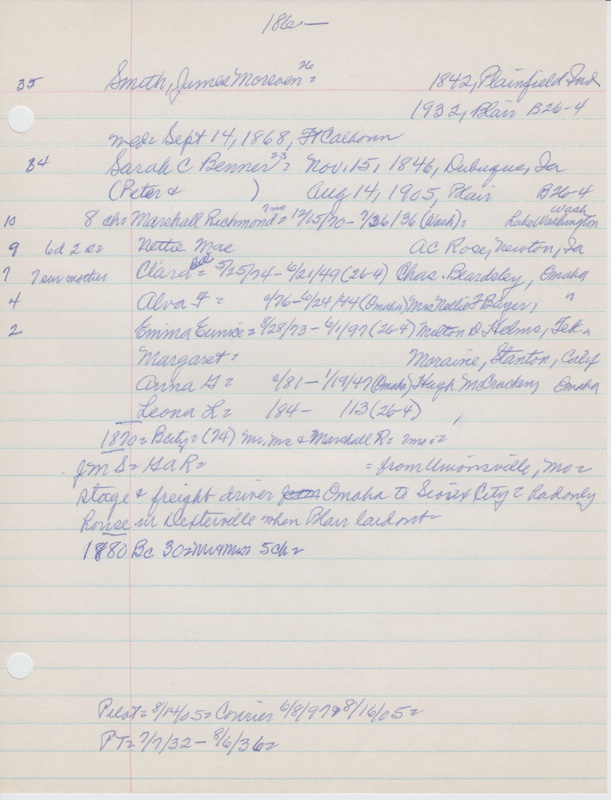 186—
35 Smith, James 26 = 1842, Plainfield Ind
1932, Blair B26-4
med= Sept 14, 1868, Ft Calhoun
34 Sarah C Benner 23 = Nov. 15, 1846, Dubuque, Ia
(Peter & ) Aug 14, 1905, Blair B26-4
10 8 ch= Marshall Richmond 7mo = 12/15/70 - 7/26/36 (Wash)= Lake Washington Wash
9 6d 2s= Nettie Mae AC Rose, Newton, Ia
7 7 sur mother Clara Bell = 5/25/74 - 6/21/49 (26-4) Chas. Beardsley, Omaha
4 Alva F = 0/76 - 6/24/44 (Omaha) Mrs Nellie F Bayer, "
2 Emma Eunice = 9/28/73 - 6/1/97 (26-4) Melton D Helms, Tek=
Margaret = Moraine, Stanton, Calif
Anna G = 0/81 - 1/19/47 (Omaha) Hugh McCracken Omaha
Leona L = 184- 113 (26-4) ,
1870= (24) Mr, Mrs & Marshall R=
JM S= GAR= = from Unionsville, Mo=
stage & freight driver Omaha to Sioux City= had only
house in Dexterville when Blair laid out=
1880 Bc 30= 5ch=
Pilot= 8/14/05= Courier 6/8/97 & 8/16/05=
PT= 7/7/32 - 8/6/36=